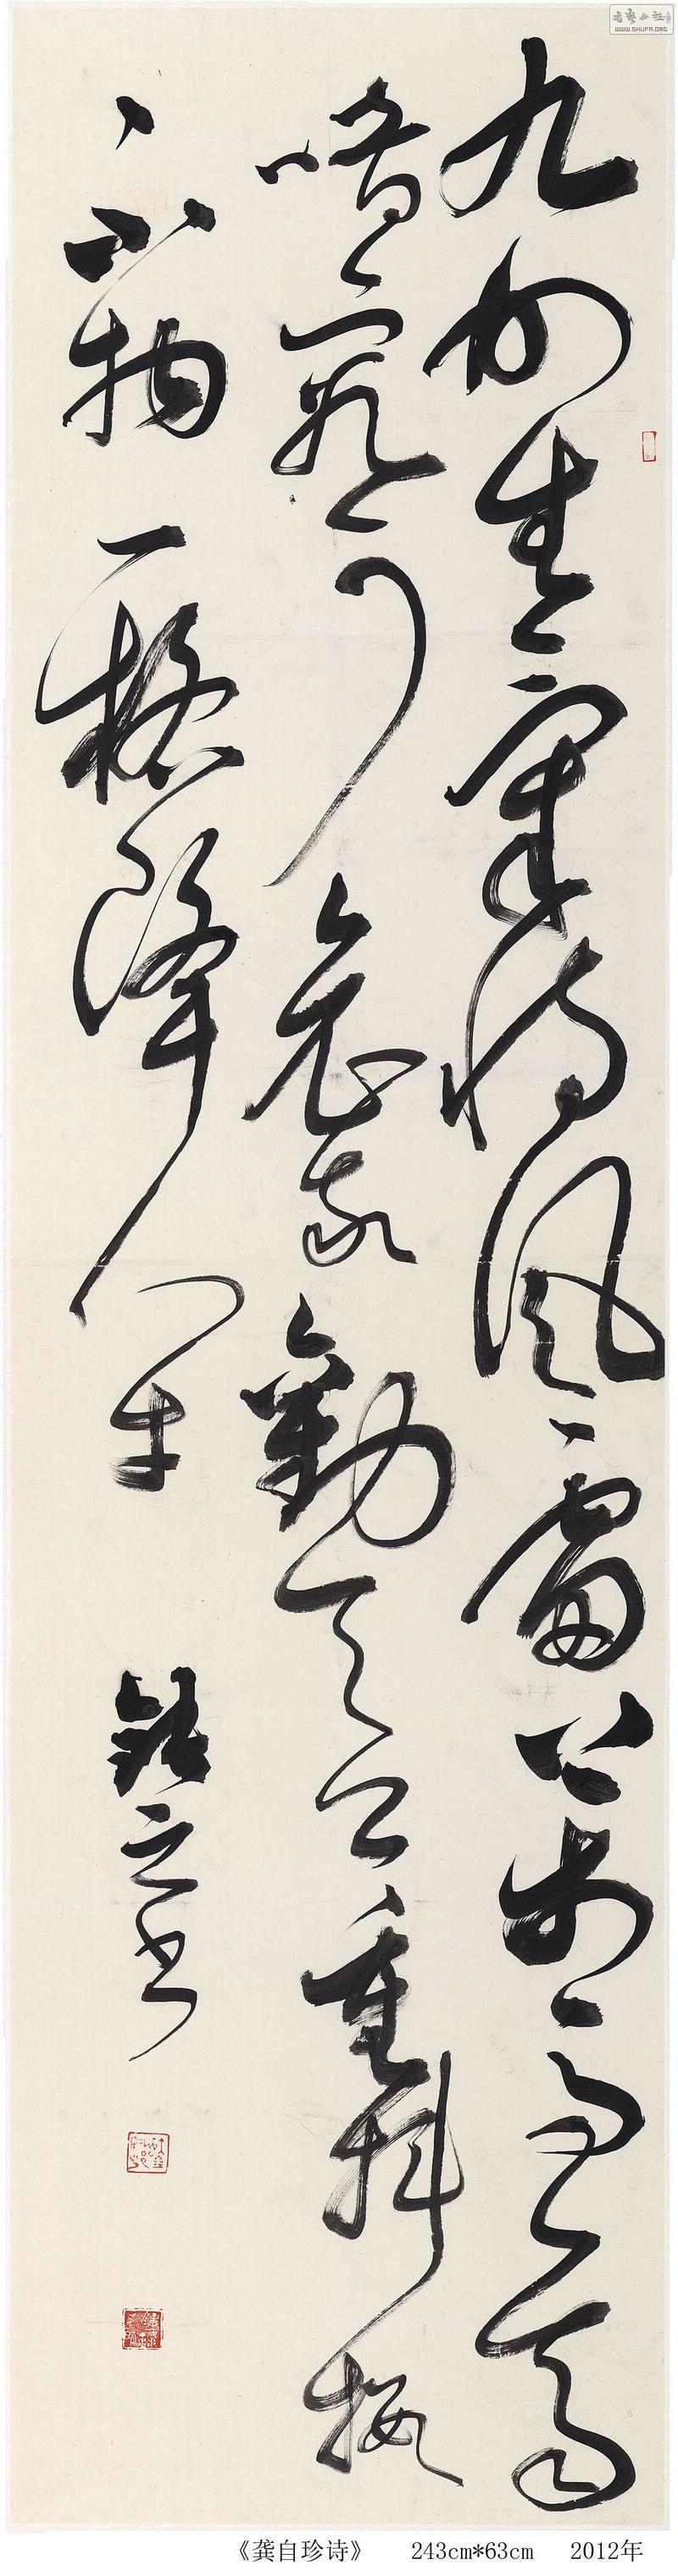 九州生氣恃風雷萬馬齊
喑究可哀我勸天公重抖擻
不拘一格降人才
之書
书艺公社
WWW.SHUFA.ORG
《龚自珍诗》 243cm*63cm 2012年